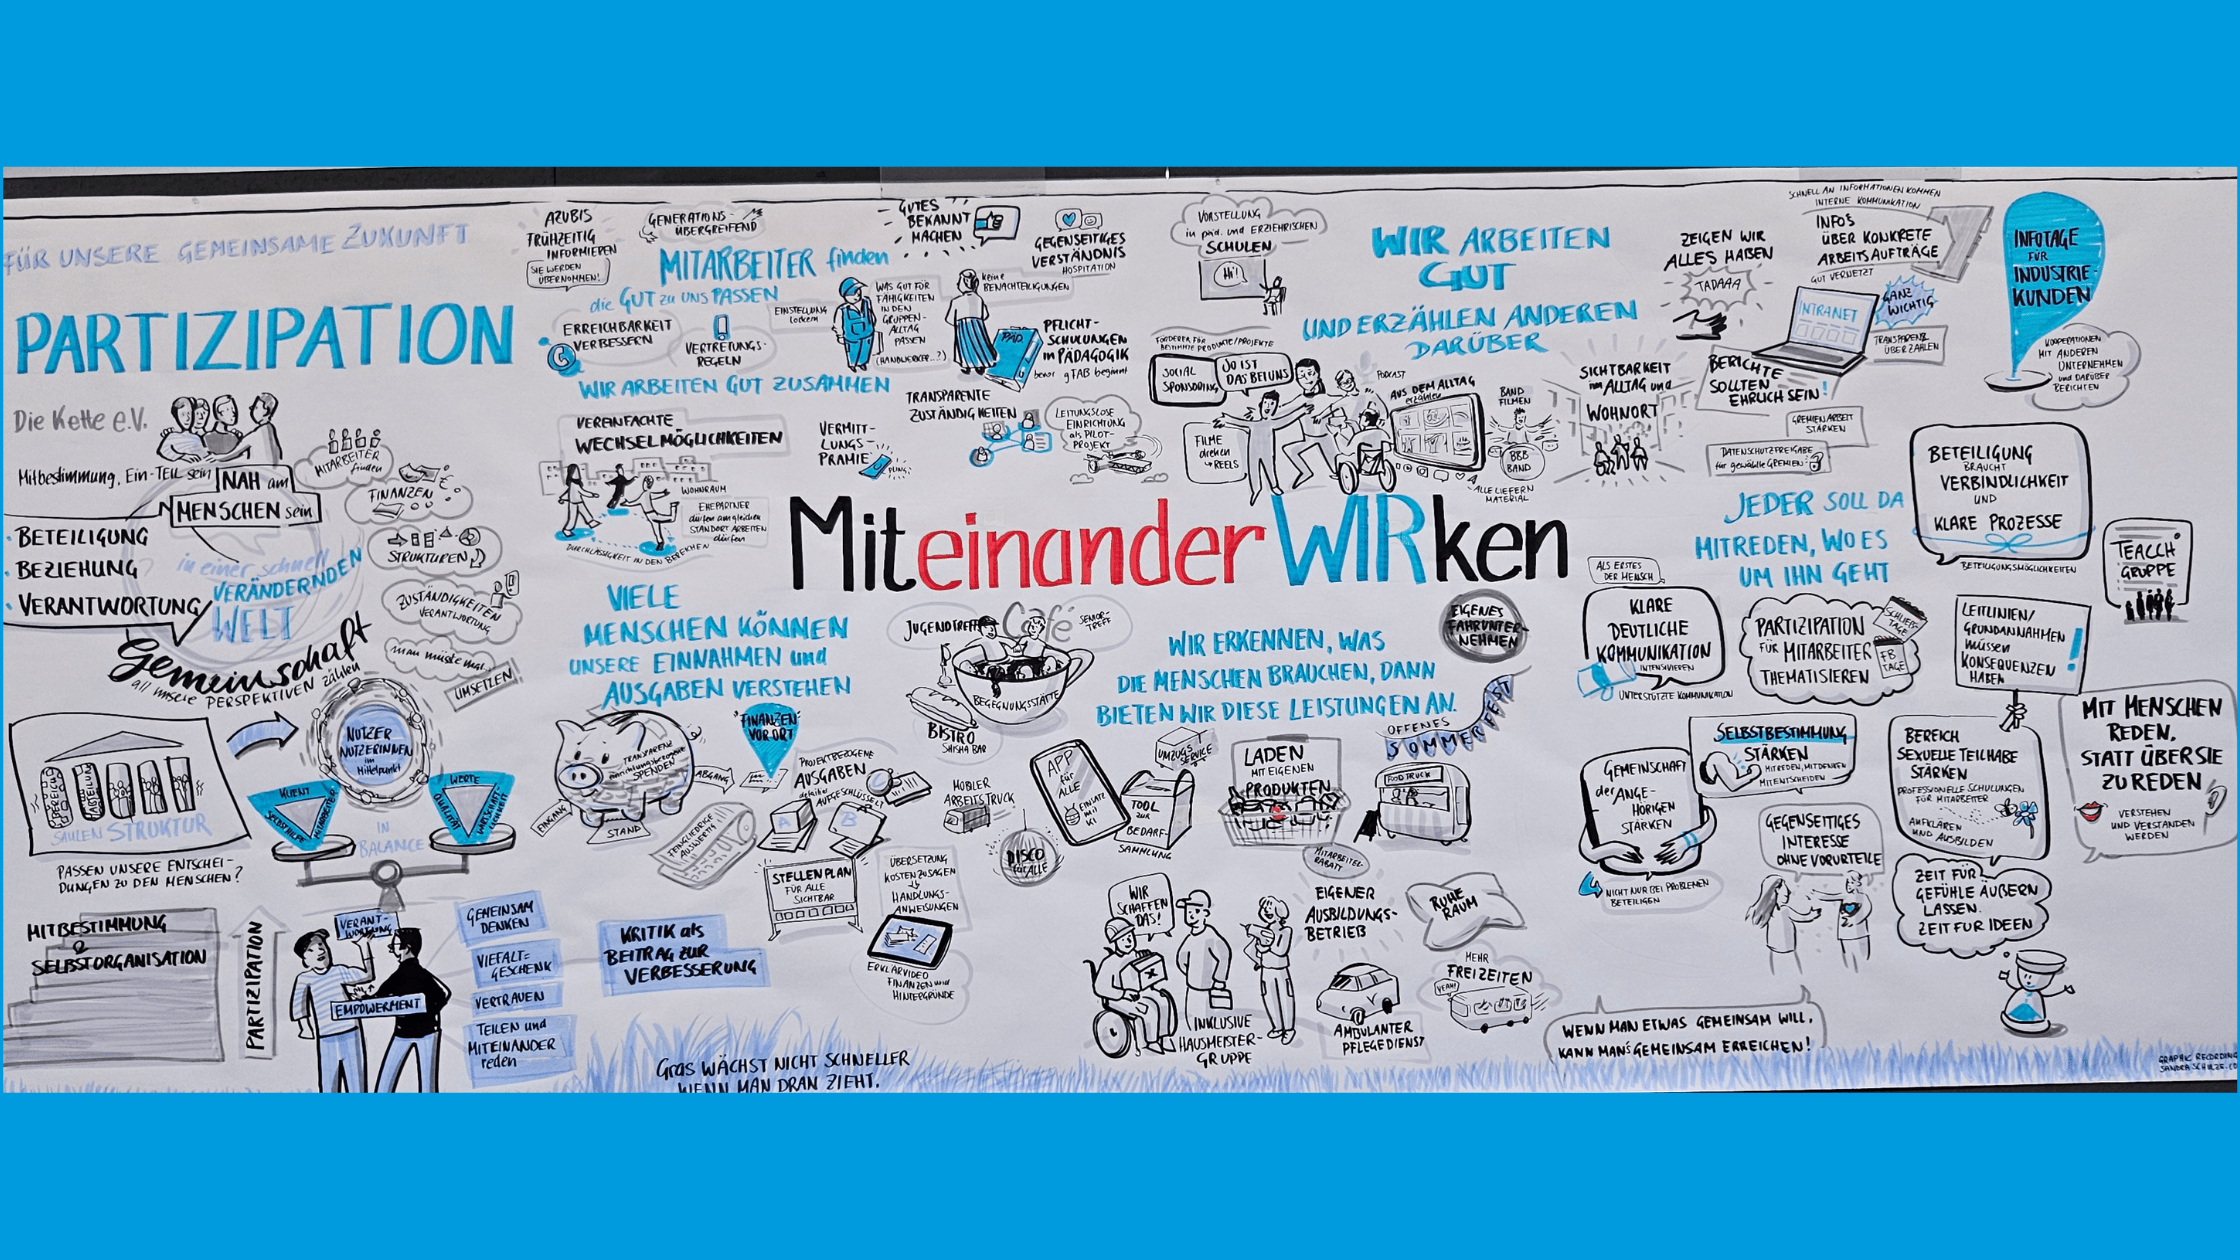 FÜR UNSERE GEMEINSAME ZUKUNFT
PARTIZIPATION
Die Kette e.V.
Mitbestimmung, Ein-Teil sein
NAH am
MENSCHEN sein
· BETEILIGUNG
· BEZIEHUNG
· VERANTWORTUNG
in einer schnell
VERÄNDERNDEN
WELT
Gemeinschaft
all unsere PERSPEKTIVEN zählen
MITARBEITER
finden
FINANZEN
STRUKTUREN
ZUSTÄNDIGKEITEN
VERANTWORTUNG
man müsste mal..
UMSETZEN
BEREICH
ABTEILUNG
SÄULEN STRUKTUR
NUTZER
NUTZERINNEN
im
Mittelpunkt
KLIENT
SELBSTHILFE
MITARBEITER
WERTE
QUALITÄT
WIRTSCHAFTLICHKEIT
IN
BALANCE
PASSEN UNSERE ENTSCHEI-
DUNGEN ZU DEN MENSCHEN?
MITBESTIMMUNG
&
SELBSTORGANISATION
PARTIZIPATION
VERANT-
WORTUNG
EMPOWERMENT
GEMEINSAM
DENKEN
VIEFALT=
GESCHENK
VERTRAUEN
TEILEN und
MITEINANDER
reden
AZUBIS
FRÜHZEITIG
INFORMIEREN
SIE WERDEN
ÜBERNOMMEN!
GENERATIONS-
ÜBERGREIFEND
MITARBEITER finden
die GUT ZU UNS PASSEN
ERREICHBARKEIT
VERBESSERN
VERTRETUNGS-
REGELN
EINSTELLUNG
lockern
WAS GUT FÜR
FÄHIGKEITEN
IN DEN
GRUPPEN-
ALLTAG
PASSEN
(HANDWERKER...?)
GUTES
BEKANNT
MACHEN
GEGENSEITIGES
VERSTÄNDNIS
HOSPITATION
keine
BENACHTEILIGUNGEN
PÄD.
PFLICHT-
SCHULUNGEN
in PÄDAGOGIK
bevor gFAB beginnt
WIR ARBEITEN GUT ZUSAMMEN
VEREINFACHTE
WECHSELMÖGLICHKEITEN
WOHNRAUM
EHEPARTNER
dürfen am gleichen
STANDORT ARBEITEN
dürfen
DURCHLÄSSIGKEIT IN DEN BEREICHEN
VERMITT-
LUNGS-
PRÄMIE
TRANSPARENTE
ZUSTÄNDIGKEITEN
LEITUNGSLOSE
EINRICHTUNG
als PILOT-
PROJEKT
MiteinanderWIRken
VORSTELLUNG
in päd. und ERZIEHRISCHEN
SCHULEN
Hi!
WIR ARBEITEN
GUT
UND ERZÄHLEN ANDEREN
DARÜBER
FÖRDERER FÜR
BESTIMMTE PRODUKTE/PROJEKTE
SOCIAL
SPONSORING
SO IST
DAS BEI UNS
FILME
drehen
REELS
PODCAST
AUS DEM ALLTAG
erzählen
BAND
FILMEN
BBB
BAND
ALLE LIEFERN
MATERIAL
SICHTBARKEIT
im ALLTAG und
WOHNORT
ZEIGEN WIR
ALLES HABEN
TADAAA
SCHNELL AN INFORMATIONEN KOMMEN
INTERNE KOMMUNIKATION
INFOS
ÜBER KONKRETE
ARBEITSAUFTRÄGE
GUT VERNETZT
INTRANET
GANZ
WICHTIG
TRANSPARENZ
BERICHTE
SOLLTEN
EHRLICH SEIN!
GREMIENARBEIT
STÄRKEN
DATENSCHUTZFREIGABE
für gewählte GREMIEN?
INFOTAGE
FÜR
INDUSTRIE-
KUNDEN
KOOPERATIONEN
MIT ANDEREN
UNTERNEHMEN
und DARÜBER
BERICHTEN
JEDER SOLL DA
MITREDEN, WO ES
UM IHN GEHT
BETEILIGUNG
BRAUCHT
VERBINDLICHKEIT
UND
KLARE PROZESSE
BETEILIGUNGSMÖGLICHKEITEN
TEACCH
GRUPPE
ALS ERSTES
DER MENSCH
KLARE
DEUTLICHE
KOMMUNIKATION
INTENSIVIEREN
UNTERSTÜTZTE KOMMUNIKATION
PARTIZIPATION
FÜR MITARBEITER
THEMATISIEREN
SCHLIEß-
TAGE
FB
TAGE
LEITLINIEN/
GRUNDANNAHMEN
müssen
KONSEQUENZEN
HABEN
!
MIT MENSCHEN
REDEN,
STATT ÜBER SIE
ZU REDEN
VERSTEHEN
UND VERSTANDEN
WERDEN
SELBSTBESTIMMUNG
STÄRKEN
MITREDEN, MITDENKEN
MITENTSCHEIDEN
GEMEINSCHAFT
der ANGE-
HÖRIGEN
STÄRKEN
NICHT NUR BEI PROBLEMEN
BETEILIGEN
BEREICH
SEXUELLE TEILHABE
STÄRKEN
PROFESSIONELLE SCHULUNGEN
FÜR MITARBEITER
AUFKLÄREN
UND AUSBILDEN
GEGENSEITIGES
INTERESSE
OHNE VORURTEILE
ZEIT FÜR
GEFÜHLE ÄUßERN
LASSEN.
ZEIT FÜR IDEEN
WENN MAN ETWAS GEMEINSAM WILL,
KANN MAN'S GEMEINSAM ERREICHEN!
VIELE
MENSCHEN KÖNNEN
UNSERE EINNAHMEN und
AUSGABEN VERSTEHEN
TRANSPARENZ
einrichtungsbezogene
SPENDEN
EINGANG
STAND
ABGANG
FINANZEN
VOR ORT
PROJEKTBEZOGENE
AUSGABEN
detailiert
AUFGESCHLÜSSELT
FEINGLIEDRIGE
AUSWERTIG
A
B
STELLENPLAN
FÜR ALLE
SICHTBAR
ÜBERSETZUNG
KOSTENZUSAGEN
HANDLUNGS-
ANWEISUNGEN
ERKLÄRVIDEO
FINANZEN und
HINTERGRÜNDE
KRITIK als
BEITRAG ZUR
VERBESSERUNG
GRAS WÄCHST NICHT SCHNELLER
WENN MAN DRAN ZIEHT.
JUGENDTREFF
Café
SENIOR-
TREFF
BEGEGNUNGSSTÄTTE
BISTRO
SHISHA BAR
WIR ERKENNEN, WAS
DIE MENSCHEN BRAUCHEN, DANN
BIETEN WIR DIESE LEISTUNGEN AN.
EIGENES
FAHRUNTER-
NEHMEN
OFFENES
SOMMERFEST
MOBILER
ARBEITSTRUCK
DISCO
für ALLE
APP
für
ALLE
EINSATZ
mit
KI
UMZUGS
SERVICE
TOOL
zur
BEDARF-
SAMMLUNG
LADEN
MIT EIGENEN
PRODUKTEN
FOOD TRUCK
MITARBEITER
RABATT
WIR
SCHAFFEN
DAS!
INKLUSIVE
HAUSMEISTER-
GRUPPE
EIGENER
AUSBILDUNGS-
BETRIEB
RUHE
RAUM
AMBULANTER
PFLEGEDIENST
MEHR
FREIZEITEN
YEAH!
GRAPHIC RECORDING